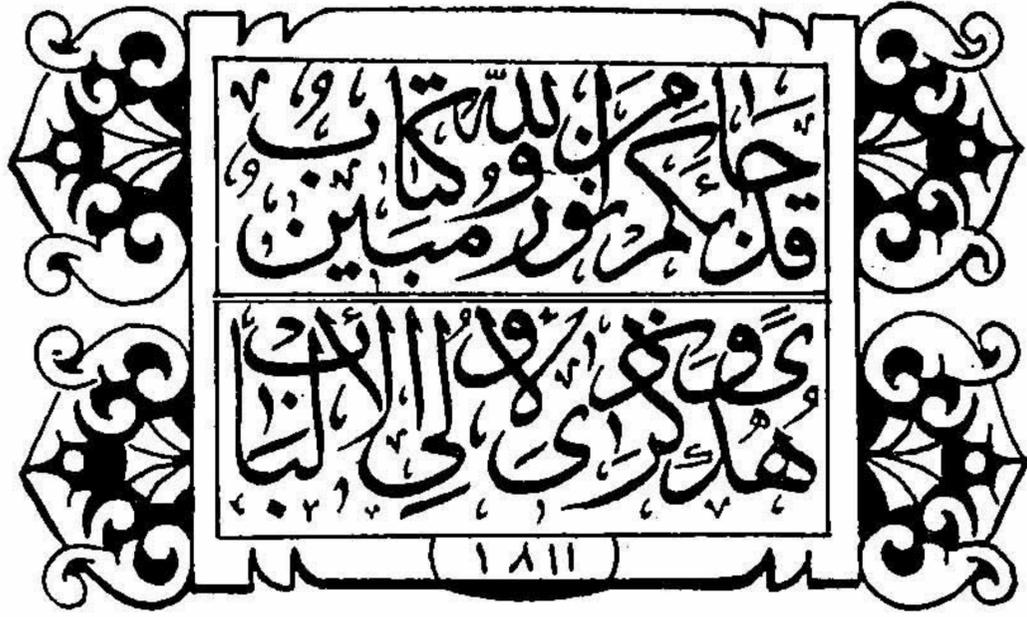 قد جائكم من الله نور وكتاب مبين
هُدًى وذكرى لاولي الالباب
١٨١١